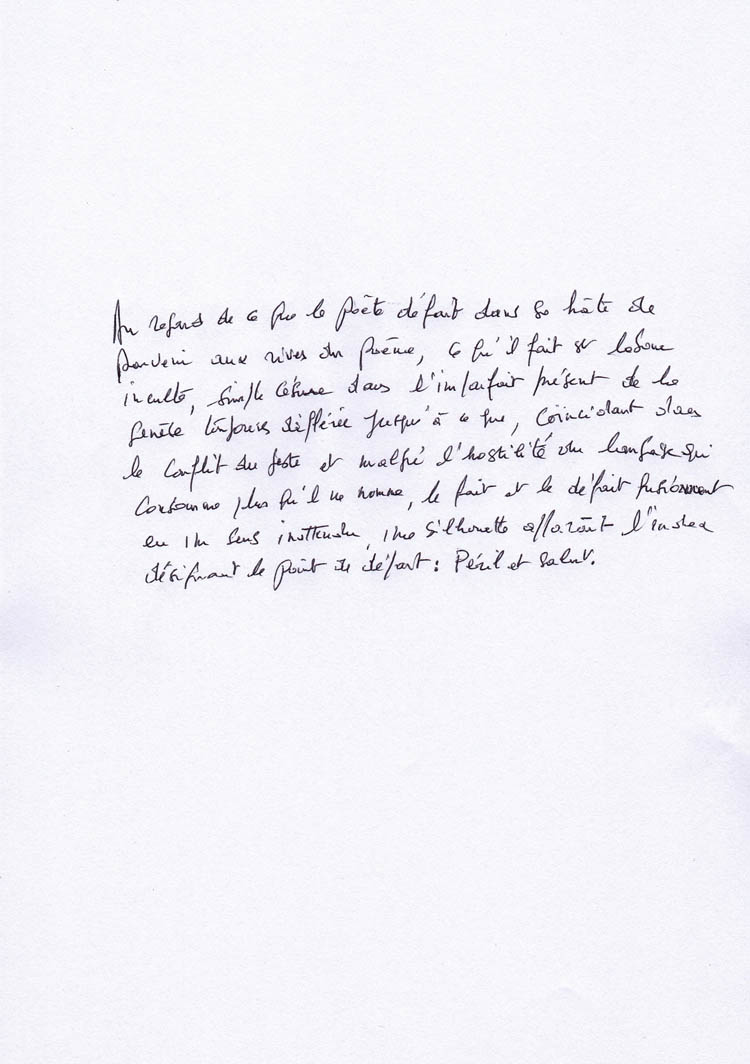 Au regard de ce que le poète défait dans sa hâte de
parvenir aux rives du poème, ce qu'il fait est labour
inculte, simple césure dans l'imparfait présent de la
genèse toujours différée jusqu'à ce que, coïncidant dans
le conflit du geste et malgré l'hostilité du langage qui
consomme plus qu'il ne nomme, le fait et le défait fusionnent
en un sens inattendu, une silhouette apparaît l'index
désignant le point de départ : Péril et salut.